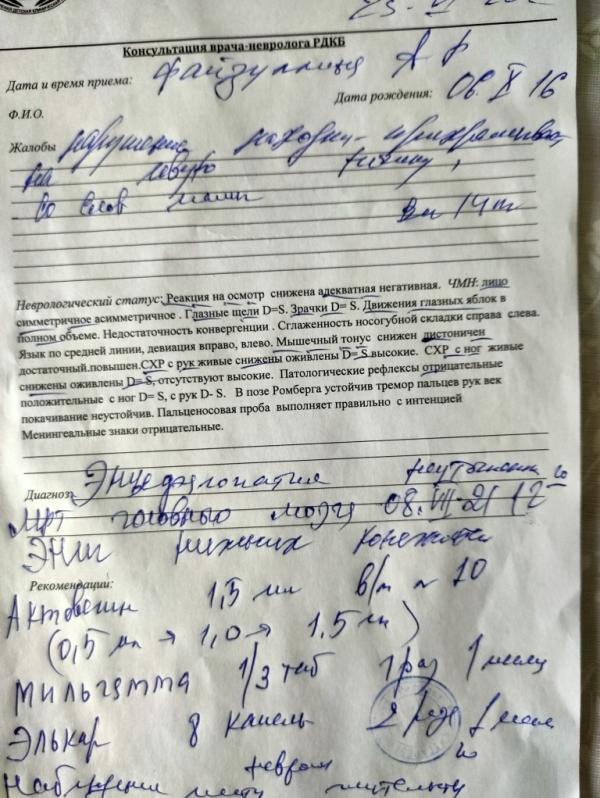 Консультация врача-невролога РДКБ
Дата и время приема:
Дата рождения: 06. X 16
Ф.И.О.
Жалобы нарушение походки -
на левую
со слов мамы
Неврологический статус: Реакция на осмотр снижена адекватная негативная. ЧМН: лицо
симметричное асимметричное . Глазные щели D=S. Зрачки D= S. Движения глазных яблок в
полном объеме. Недостаточность конвергенции . Сглаженность носогубной складки справа слева.
Язык по средней линии, девиация вправо, влево. Мышечный тонус снижен дистоничен
достаточный.повышен.СХР с рук живые снижены оживлены D= S.высокие. СХР с ног живые
снижены оживлены D= S, отсутствуют высокие. Патологические рефлексы отрицательные
положительные с ног D= S, с рук D- S. В позе Ромберга устойчив тремор пальцев рук век
покачивание неустойчив. Пальценосовая проба выполняет правильно с интенцией
Менингеальные знаки отрицательные.
Диагноз: Энцефалопатия
МРТ головного мозга 08. VII-21 12
ЭНМГ нижних конечностей
Рекомендации:
Актовегин 1,5 мл в/м № 10
(0,5 мл → 1,0 → 1,5 мл)
Мильгамма 1/3 таб 1 раз 1 месяц
Элькар 8 капель 2 раза 1 месяц
невролога
Наблюдение месту жительства